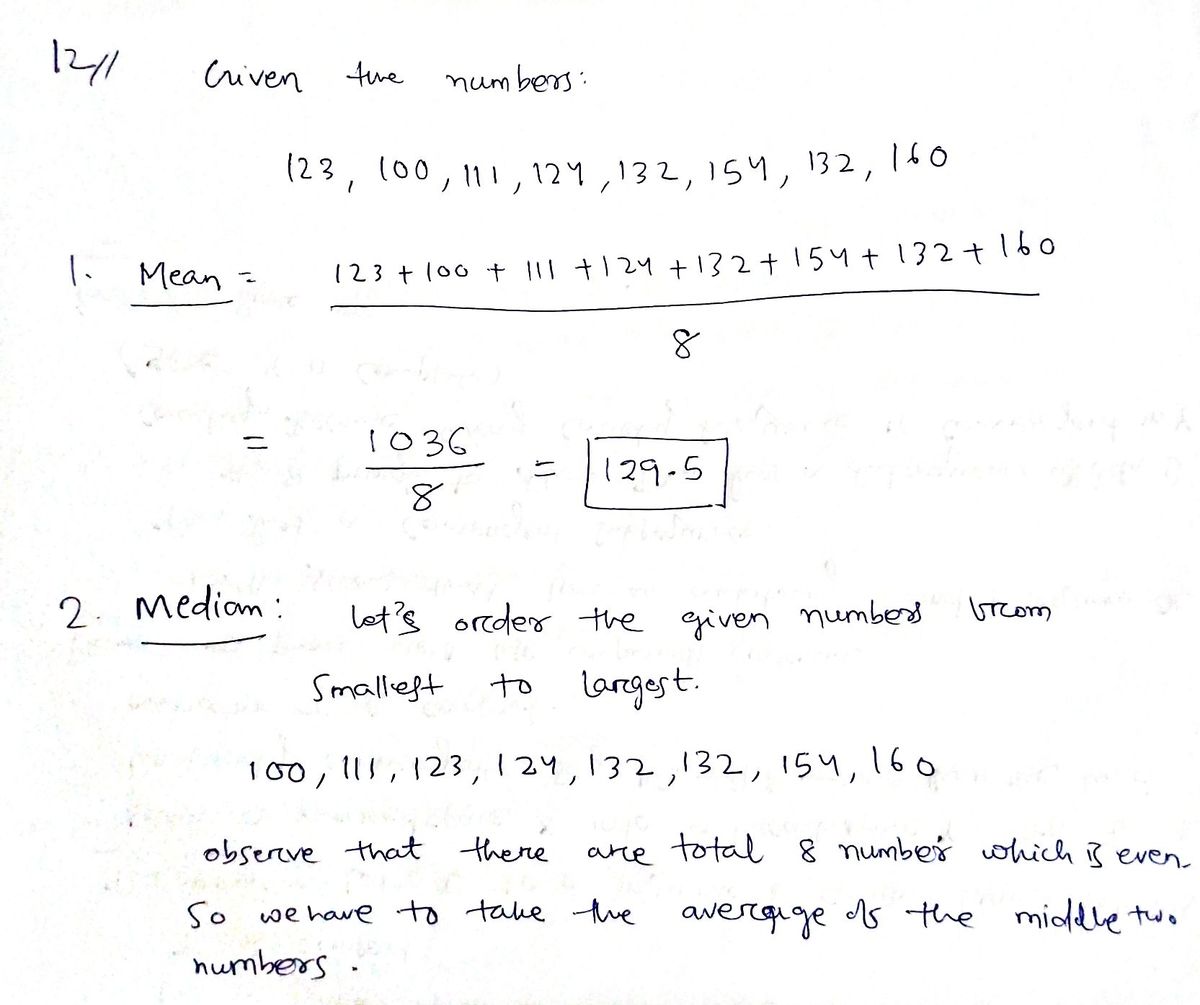 12//
Given the numbers:
123, 100, 111, 124, 132, 154, 132, 160
1. Mean = 123 + 100 + 111 + 124 + 132 + 154 + 132 + 160
8
= 1036 / 8 = 129.5
2. Median: Let's order the given numbers from
smallest to largest.
100, 111, 123, 124, 132, 132, 154, 160
observe that there are total 8 number which is even.
So we have to take the average of the middle two
numbers.